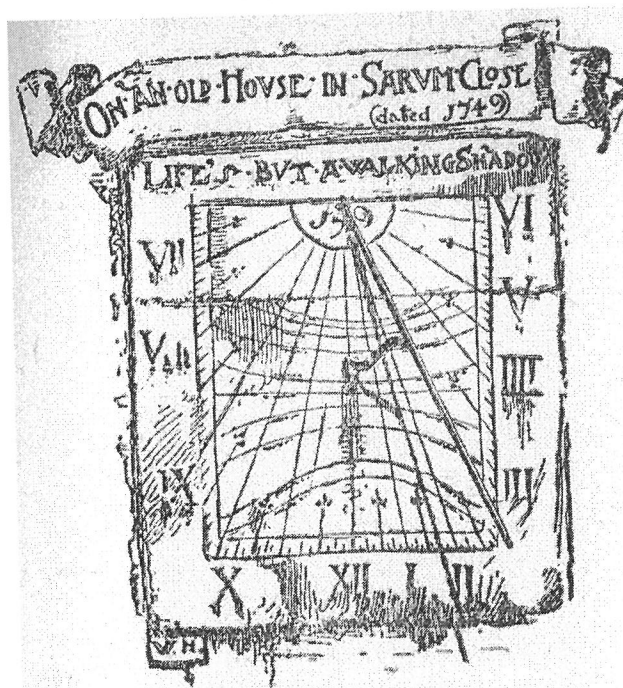 ON·AN·OLD·HOVSE·IN·SARVM·CLOSE
(dated 1749)
LIFE'S·BVT·A·WALKING SHADOW
VI
VII
V
VIII
IIII
IX
III
X XII I II